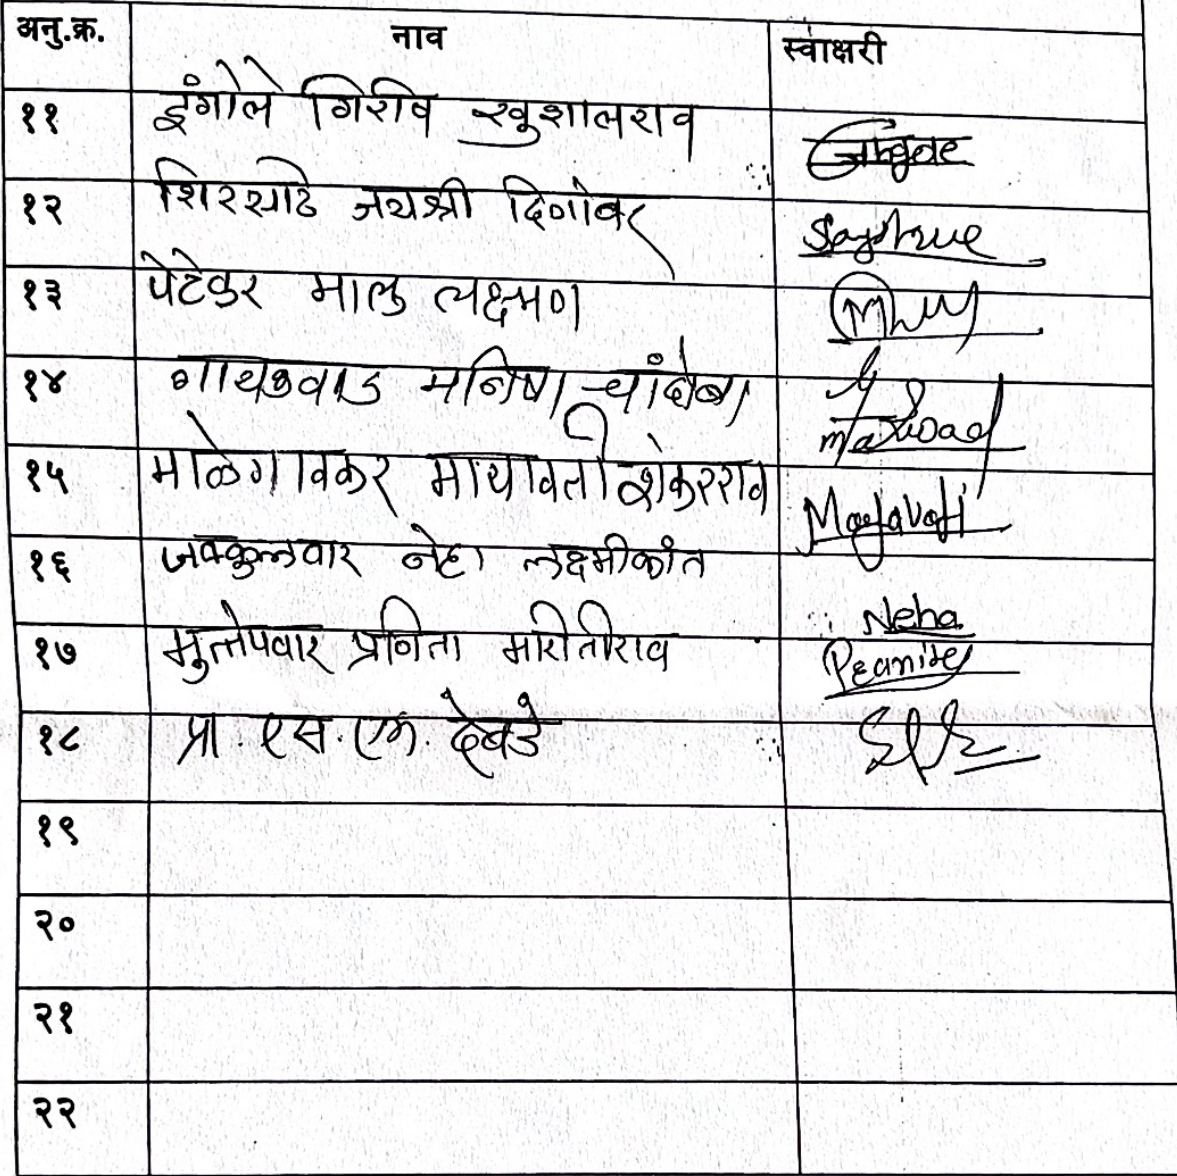 अनु.क्र. नाव स्वाक्षरी
११ इंगोले गिरीष खुशालराव
१२ शिरसाठे जयश्री दिगांबर
१३ पेटेकर मालु लक्ष्मण
१४ गायकवाड मनिषा चांदोबा
१५ माळेगावकर मायावती शंकरराव Mayavati
१६ जक्कुलवार नेहा लक्ष्मीकांत Neha
१७ मुत्तेपवार प्रनिता मारोतीराव
१८ प्रा. एस.एम. देवडे
१९
२०
२१
२२